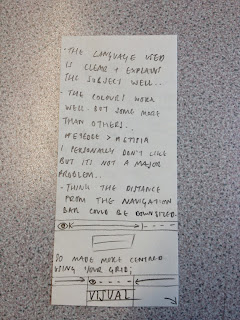 - THE LANGUAGE USED
IS CLEAR + EXPLAINS
THE SUBJECT WELL..
- THE COLOURS WORK
WELL. BUT SOME MORE
THAN OTHERS..
I PERSONALLY DON'T LIKE
BUT IT'S NOT A MAJOR
PROBLEM..
- THINK THE DISTANCE
FROM THE NAVIGATION
BAR COULD BE DOWNSIZED.
SO MADE MORE CENTRED
USING YOUR GRID;
VISUAL